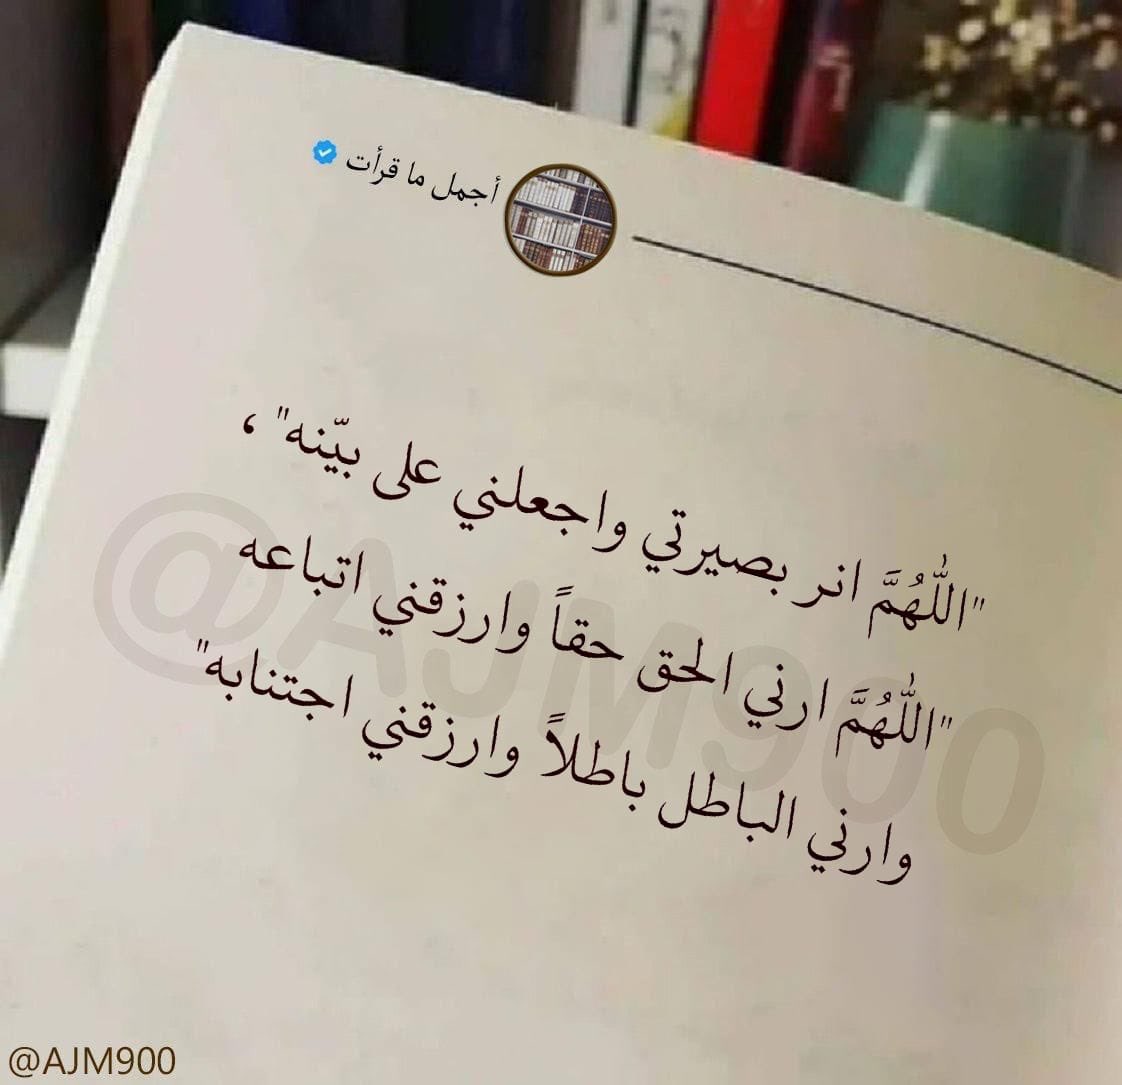 أجمل ما قرأت
"اللّٰهُمَّ انر بصيرتي واجعلني على بيّنه" ،
"اللّٰهُمَّ ارني الحق حقاً وارزقني اتباعه
وارني الباطل باطلاً وارزقني اجتنابه"
@AJM900
@AJM900